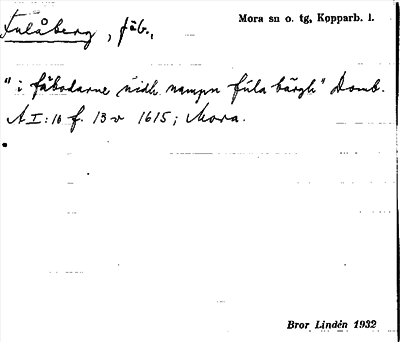 Fulåberg, fäb., Mora sn o. tg, Kopparb. l.
"i fåbodarne vidh nampn fula bärgh" Domb.
A I:16 f. 13 v 1615; Mora.
Bror Lindén 1932